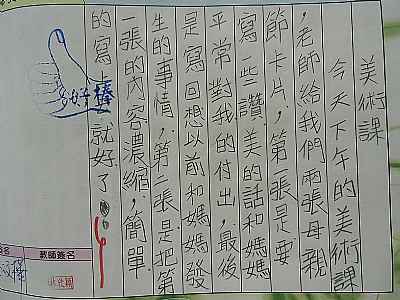 美術課
今天下午的美術課
，老師給我們兩張母親
節卡片，第一張是要
寫一些讚美的話和媽媽
平常對我的付出，最後
是寫回想以前和媽媽發
生的事情，第二張是把第
一張的內容濃縮，簡單
的寫上就好了
好棒
教師簽名